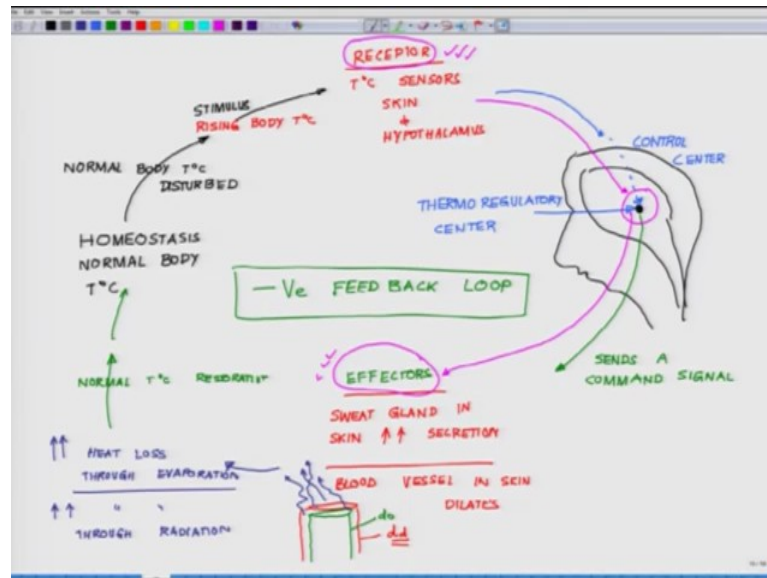 RECEPTOR
T°C SENSORS
SKIN
+
HYPOTHALAMUS
STIMULUS
RISING BODY T°C
NORMAL BODY T°C
DISTURBED
HOMEOSTASIS
NORMAL BODY
T°C
CONTROL
CENTER
THERMO REGULATORY
CENTER
-Ve FEED BACK LOOP
SENDS A
COMMAND SIGNAL
EFFECTORS
SWEAT GLAND IN
SKIN ↑↑ SECRETION
BLOOD VESSEL IN SKIN
DILATES
do
dd
NORMAL T°C
↑↑ HEAT LOSS
THROUGH EVAPORATION
↑↑ " "
THROUGH RADIATION